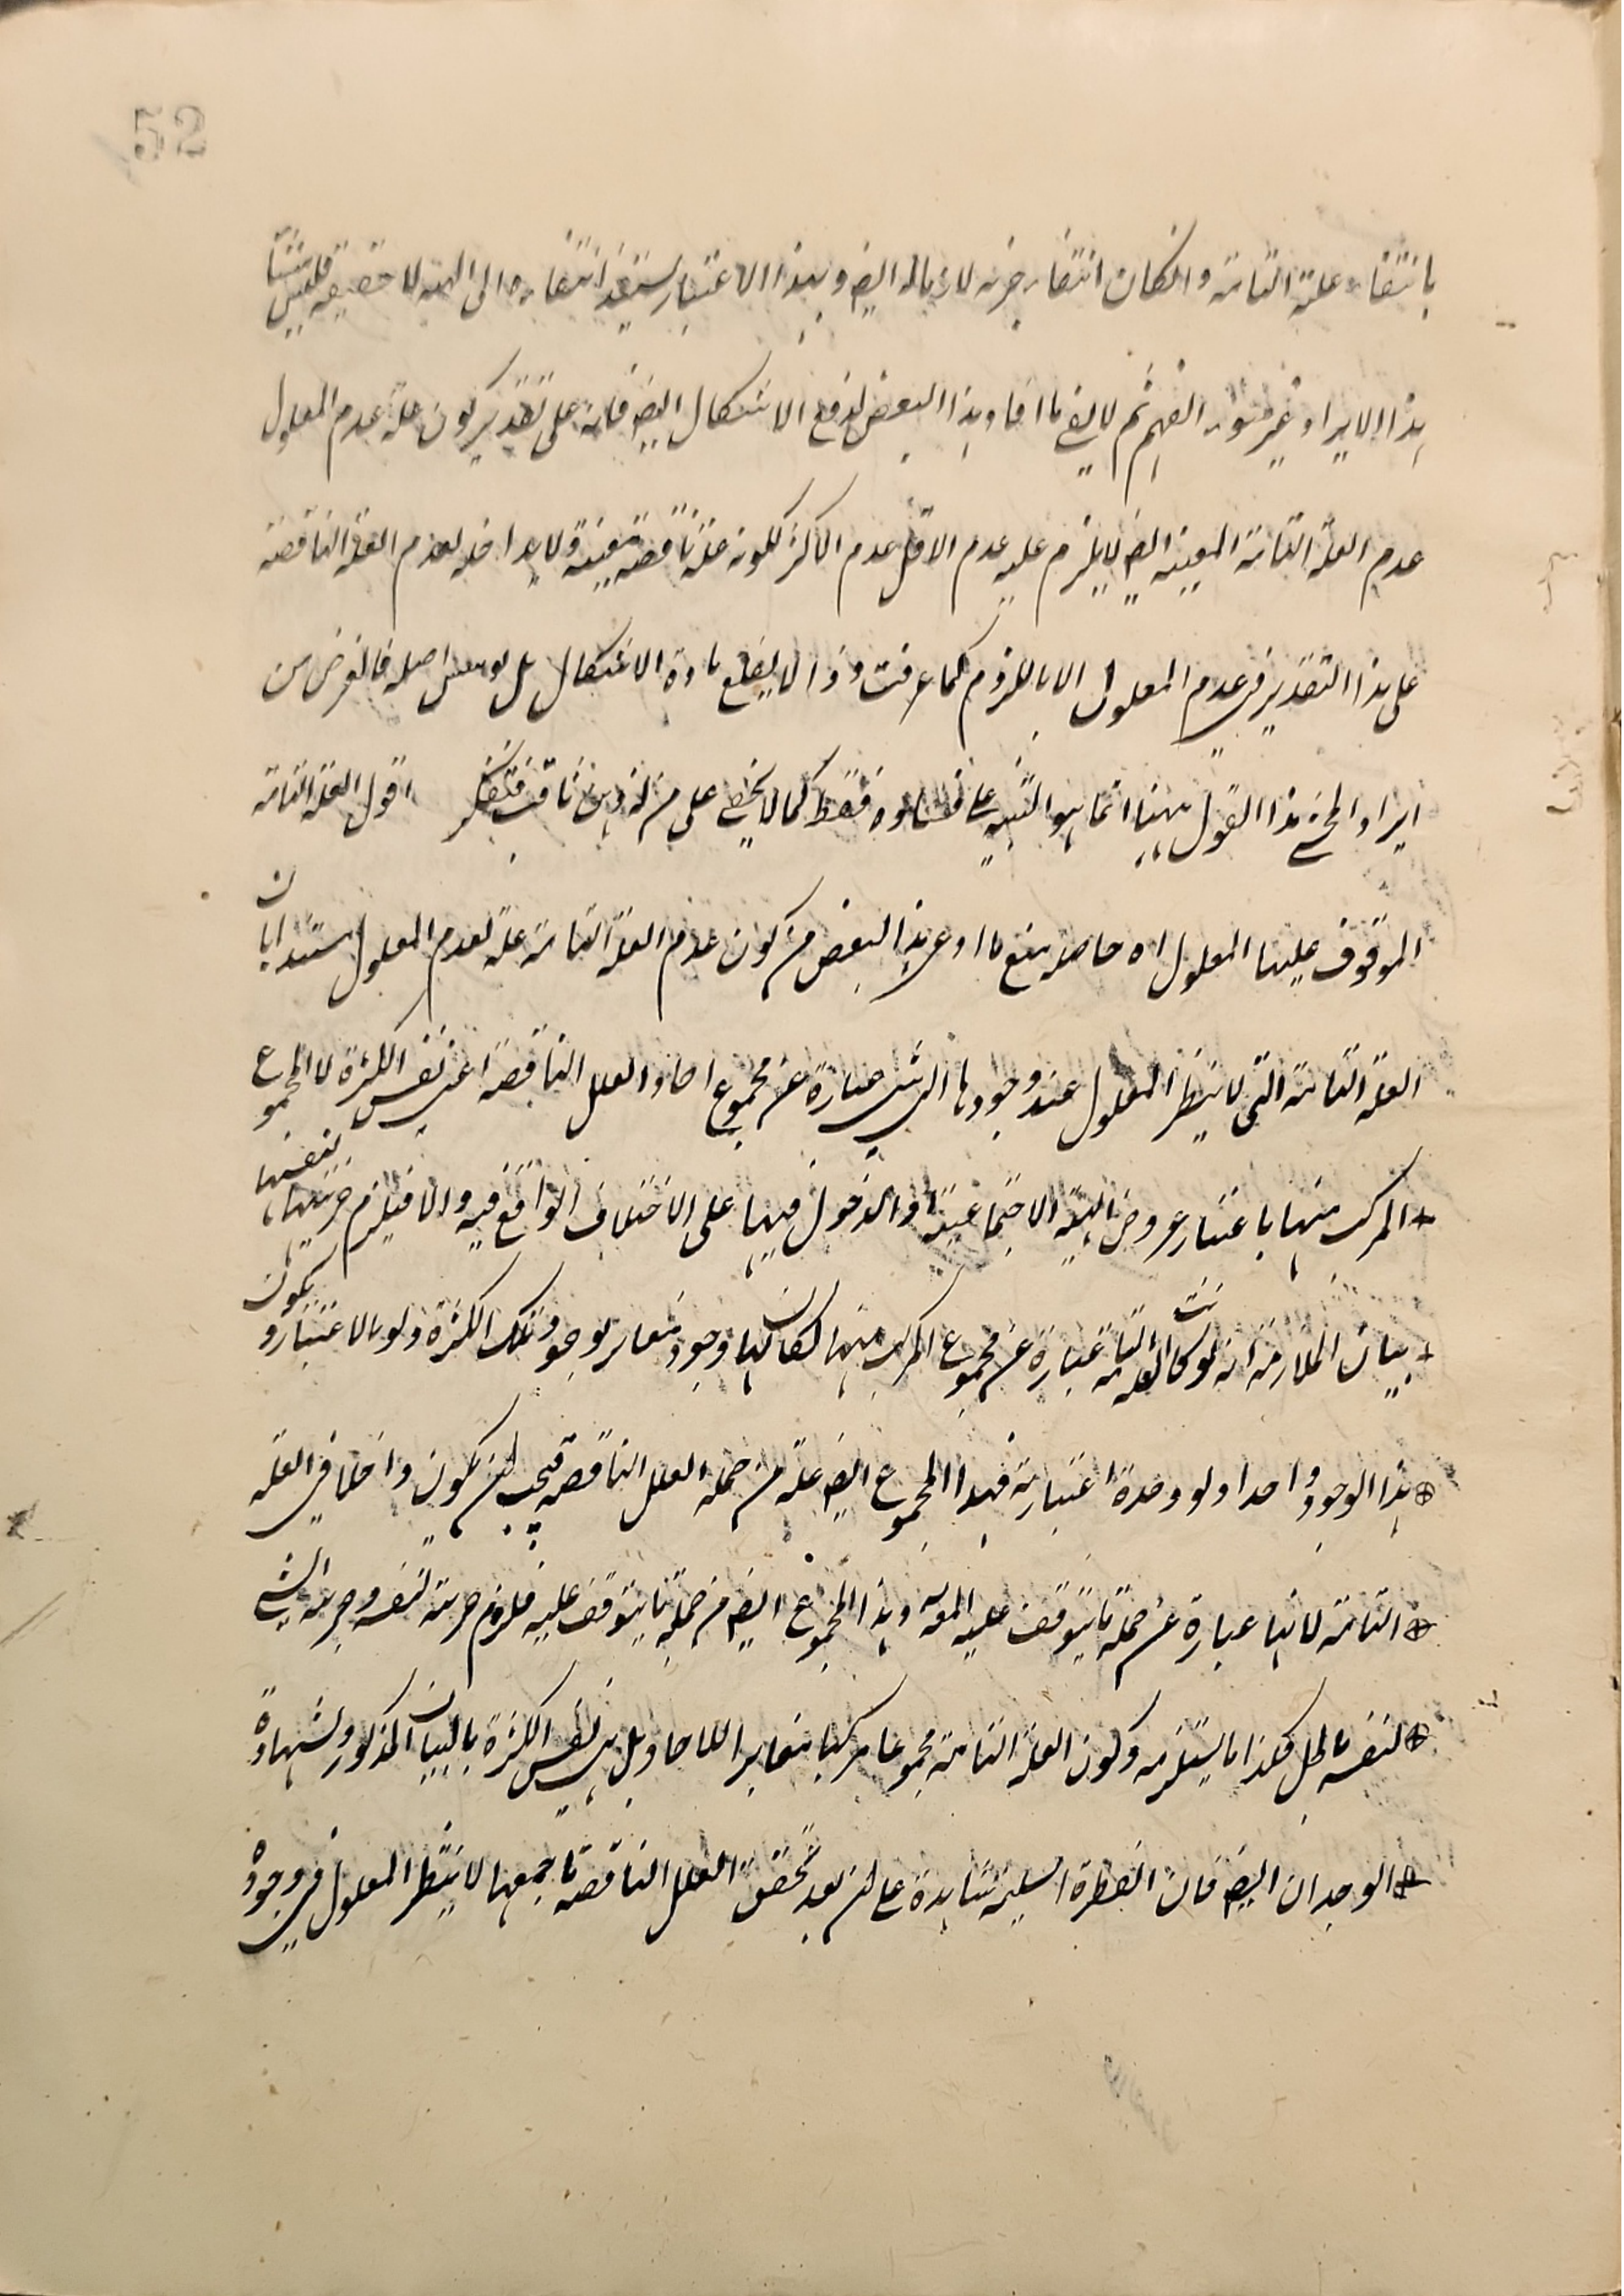 52
بانتفاء علته التامة وانكان انتفاء جزئه لازما له ايضا وبهذا الاعتبار يستند انتفاءه الى الهيه لا حقيقة فليس منشأ
هذا الايراد غير سوء الفهم ثم لا يخفى ما افاد هذا البعض لدفع الاشكال ايضا فانه على تقدير كون علة عدم المعلول
عدم العلة التامة المعينة ايضا لا يلزم عليه عدم الاقل عدم الاكثر لكونه علة ناقصة معينة ولا مداخله لعدم العلة الناقصة
على هذا التقدير في عدم المعلول الا باللزوم كما عرفت وذا لا يقلع مادة الاشكال بل اصله فالغرض من
ايراد المحشي هذا القول ههنا انما هو التنبيه على فساده فقط كما لا يخفى على من له ذهن ثاقب فتفكر اقول العلة التامة
الموقوف عليها المعلول اه حاصله منع ما ادعى هذا البعض من كون عدم العلة التامة علة لعدم المعلول مستندا بان
العلة التامة التي لا ينتظر المعلول عند وجودها الى شيء عبارة عن مجموع احاد العلل الناقصة اعني نفس الكثرة لا المجموع
المركب منها باعتبار عروض الهيئة الاجتماعية او الدخول فيها على الاختلاف الواقع فيه والا فيلزم جزئيتها لنفسها
بيان الملازمة انه لو كانت العلة التامة عبارة عن مجموع المركب منها لكان لها وجود مغاير لوجود تلك الكثرة ولو بالاعتبار ويكون
هذا الوجود واحدا ولو وحدة اعتبارية فهذا المجموع ايضا علة من جملة العلل الناقصة فيجب ان يكون داخلا في العلة
التامة لانها عبارة عن جملة ما يتوقف عليه المعلول وهذا المجموع ايضا من جملة ما يتوقف عليه فلزم جزئيته لنفسه وجزئية الشيء
لنفسه باطل فكذا ما يستلزمه وكون العلة التامة مجموعا مركبا مغايرا للاحاد بل هي نفس الكثرة بالبيان المذكور ولشهادة
الوجدان ايضا فان الفطرة السليمة شاهدة على ان بعد تحقق العلل الناقصة باجمعها لا ينتظر المعلول في وجوده